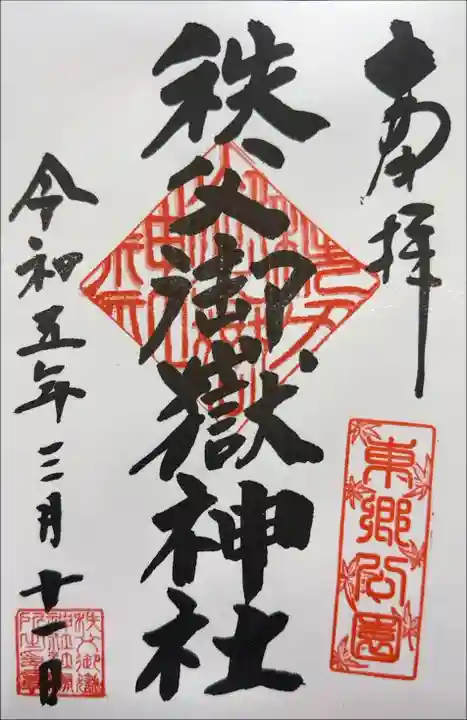 奉拝
東郷公園
秩父御嶽神社
令和五年三月十一日